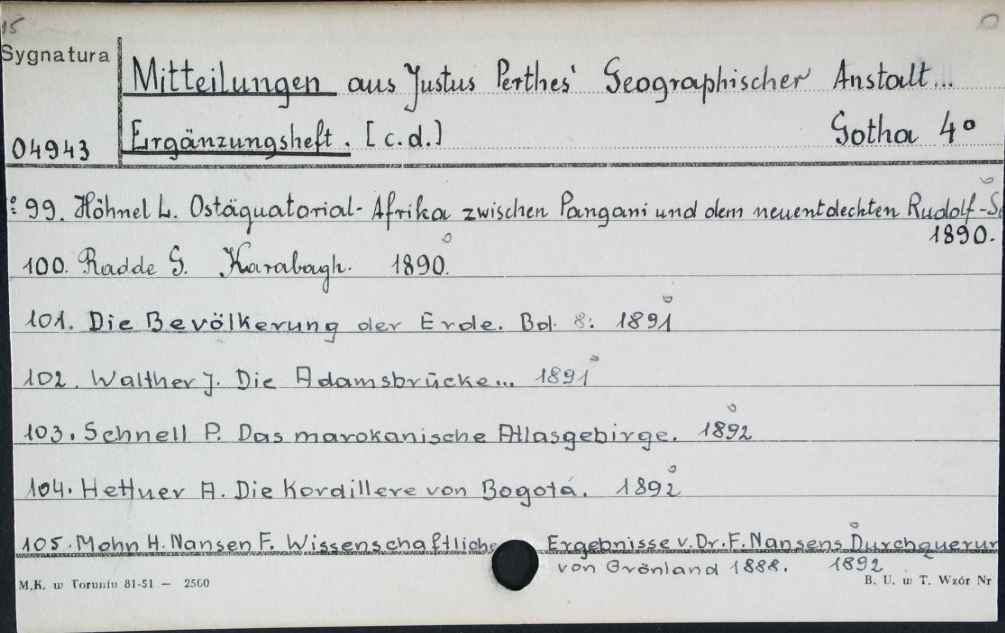 15
Sygnatura
Mitteilungen aus Justus Perthes' Geographischer Anstalt...
04943 Ergänzungsheft. [c.d.] Gotha 4°
: 99. Höhnel L. Ostäquatorial-Afrika zwischen Pangani und dem neuentdechten Rudolf-S
1890.
100. Radde G. Karabagh. 1890.
101. Die Bevölkerung der Erde. Bd. 8: 1891
102. Walther J. Die Adamsbrücke... 1891
103. Schnell P. Das marokanische Atlasgebirge. 1892
104. Hettner A. Die Kordillere von Bogotá. 1892
105. Mohn H. Nansen F. Wissenschaftliche Ergebnisse v. Dr. F. Nansens Durchquerun
von Grönland 1888. 1892
M.K. w Toruniu 81-51 — 2500 B. U. w T. Wzór Nr